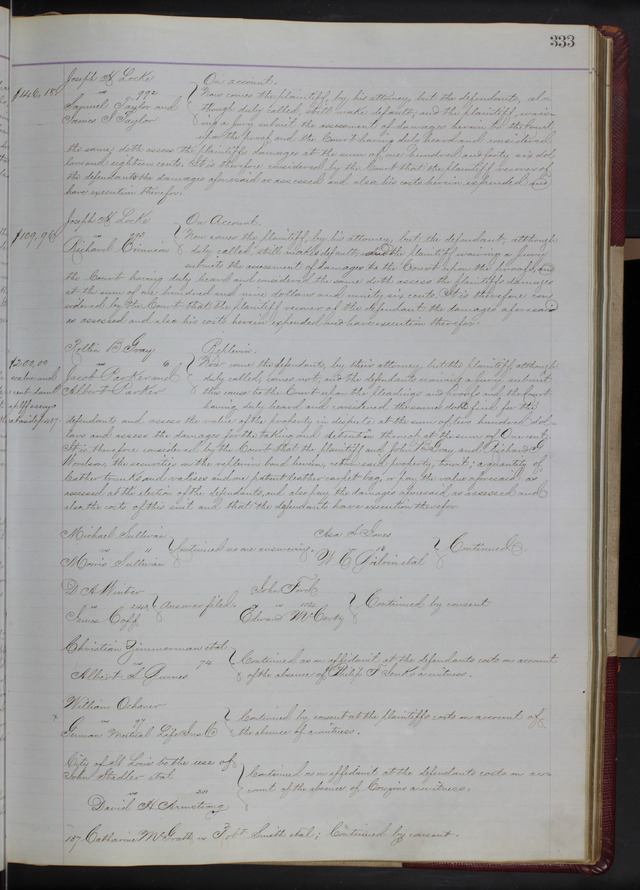 333
Joseph H Locke
vs 992
Samuel Taylor and
James S Taylor
$146.18
On account.
Now comes the plaintiff, by his attorney, but the defendants, al-
though duly called, still make default, and the plaintiff waiv-
ing a jury submits the assessment of damages herein to the Court
upon the proof, and the Court having duly heard and considered
the same, doth assess the plaintiffs damages at the sum of one hundred and forty six dol
lars and eighteen cents. It is therefore considered by the Court that the plaintiff recover of
the defendants the damages aforesaid as assessed and also his costs herein expended and
have execution therefor.
Joseph H Locke
vs 993
Richard
$109.96
On Account.
Now comes the plaintiff, by his attorney, but the defendant, although
duly called, still makes default, and the plaintiff waiving a jury
submits the assessment of damages to the Court upon the proofs, and
the Court having duly heard and considered the same doth assess the plaintiffs damages
at the sum of one hundred and nine dollars and ninety six cents. It is therefore con
sidered by the Court that the plaintiff recover of the defendant the damages aforesaid
as assessed and also his costs herein expended and have execution therefor.
B Gray
vs 6
Jacob Parker and
Albert Parker
$200.00
Replevin.
Now come the defendants, by their attorney, but the plaintiff although
duly called, comes not, and the defendants waiving a jury, submit
this cause to the Court upon the pleadings and proofs and the Court
having duly heard and considered the same doth find for the
defendants and assess the value of the property in dispute at the sum of two hundred dol
lars and assess the damages for the taking and detention thereof at the sum of One cent.
It is therefore considered by the Court that the plaintiff and John B Gray and Richard
the securities in the replevin bond herein, return said property, to wit; a quantity of
leather trunks and valises and one patent leather carpet bag, or pay the value aforesaid as
assessed at the election of the defendants, and also pay the damages aforesaid as assessed and
also the costs of this suit and that the defendants have execution therefor.
Michael Sullivan
vs 11
Morris Sullivan
Continued as one answering.
Asa S Jones
vs 16
W C et al
Continued.
D A Winter
vs 243
James Goff
Answer filed.
John Ford
vs 104
Edward McCarty
Continued by consent
Christian Zimmerman et al
vs 74
Albert S
Continued as on affidavit at the defendants costs on account
of the absence of Philip T a witness.
William
vs 97
German Mutual Life Ins Co
Continued by consent at the plaintiffs costs on account of
the absence of a witness.
City of St Louis to the use of
John Stadler et al
vs 201
David H Armstrong
Continued as on affidavit at the defendants costs on ac-
count of the absence of a witness.
187 Catharine McGrath vs Robt Smith et al; Continued by consent.